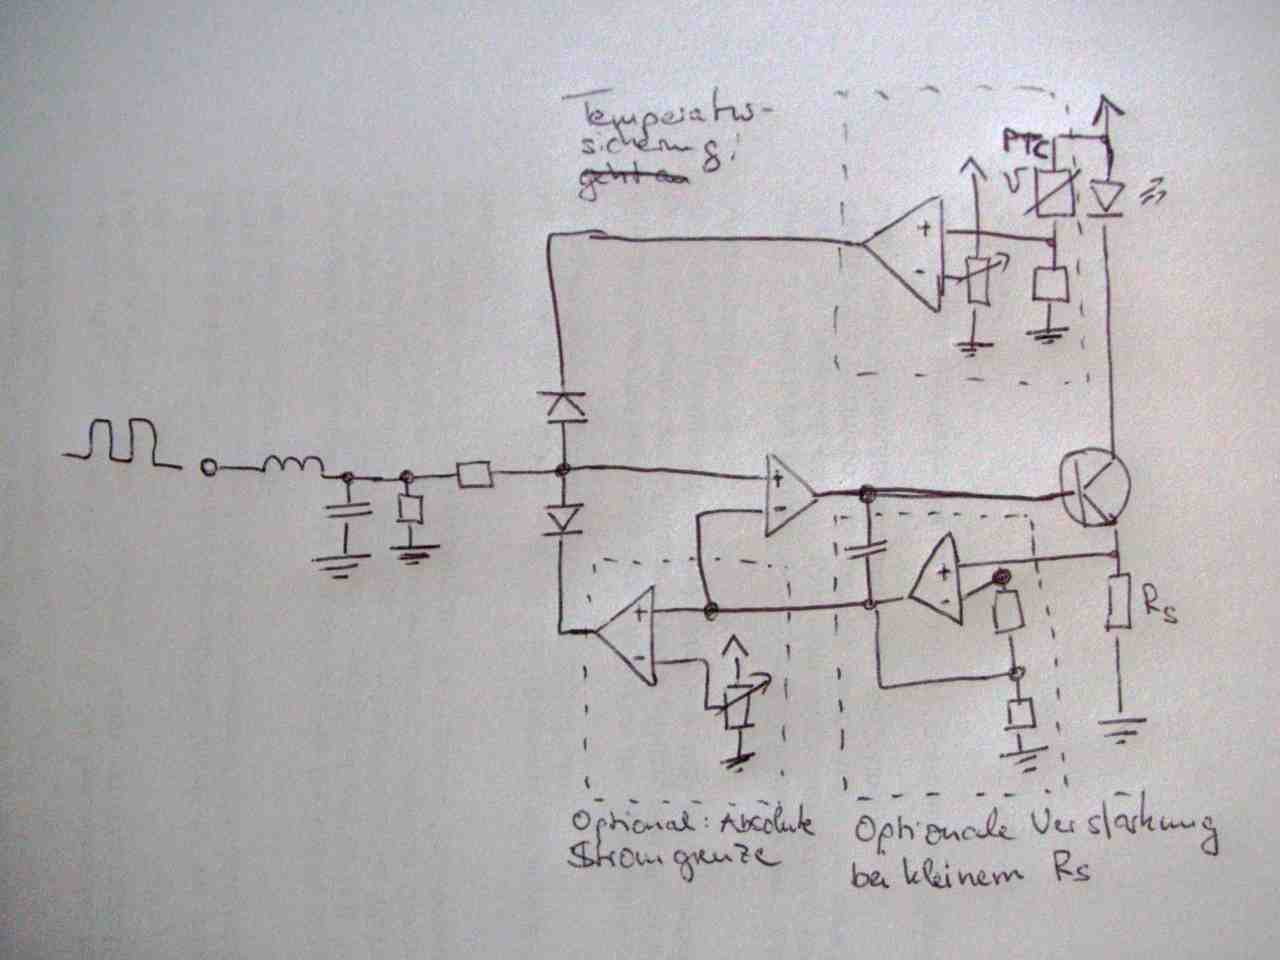 Temperatur-
sicherung
PTC
+
-
+
-
+
-
RS
+
-
Optional: Absolute
Stromgrenze
Optionale Verstärkung
bei kleinem RS